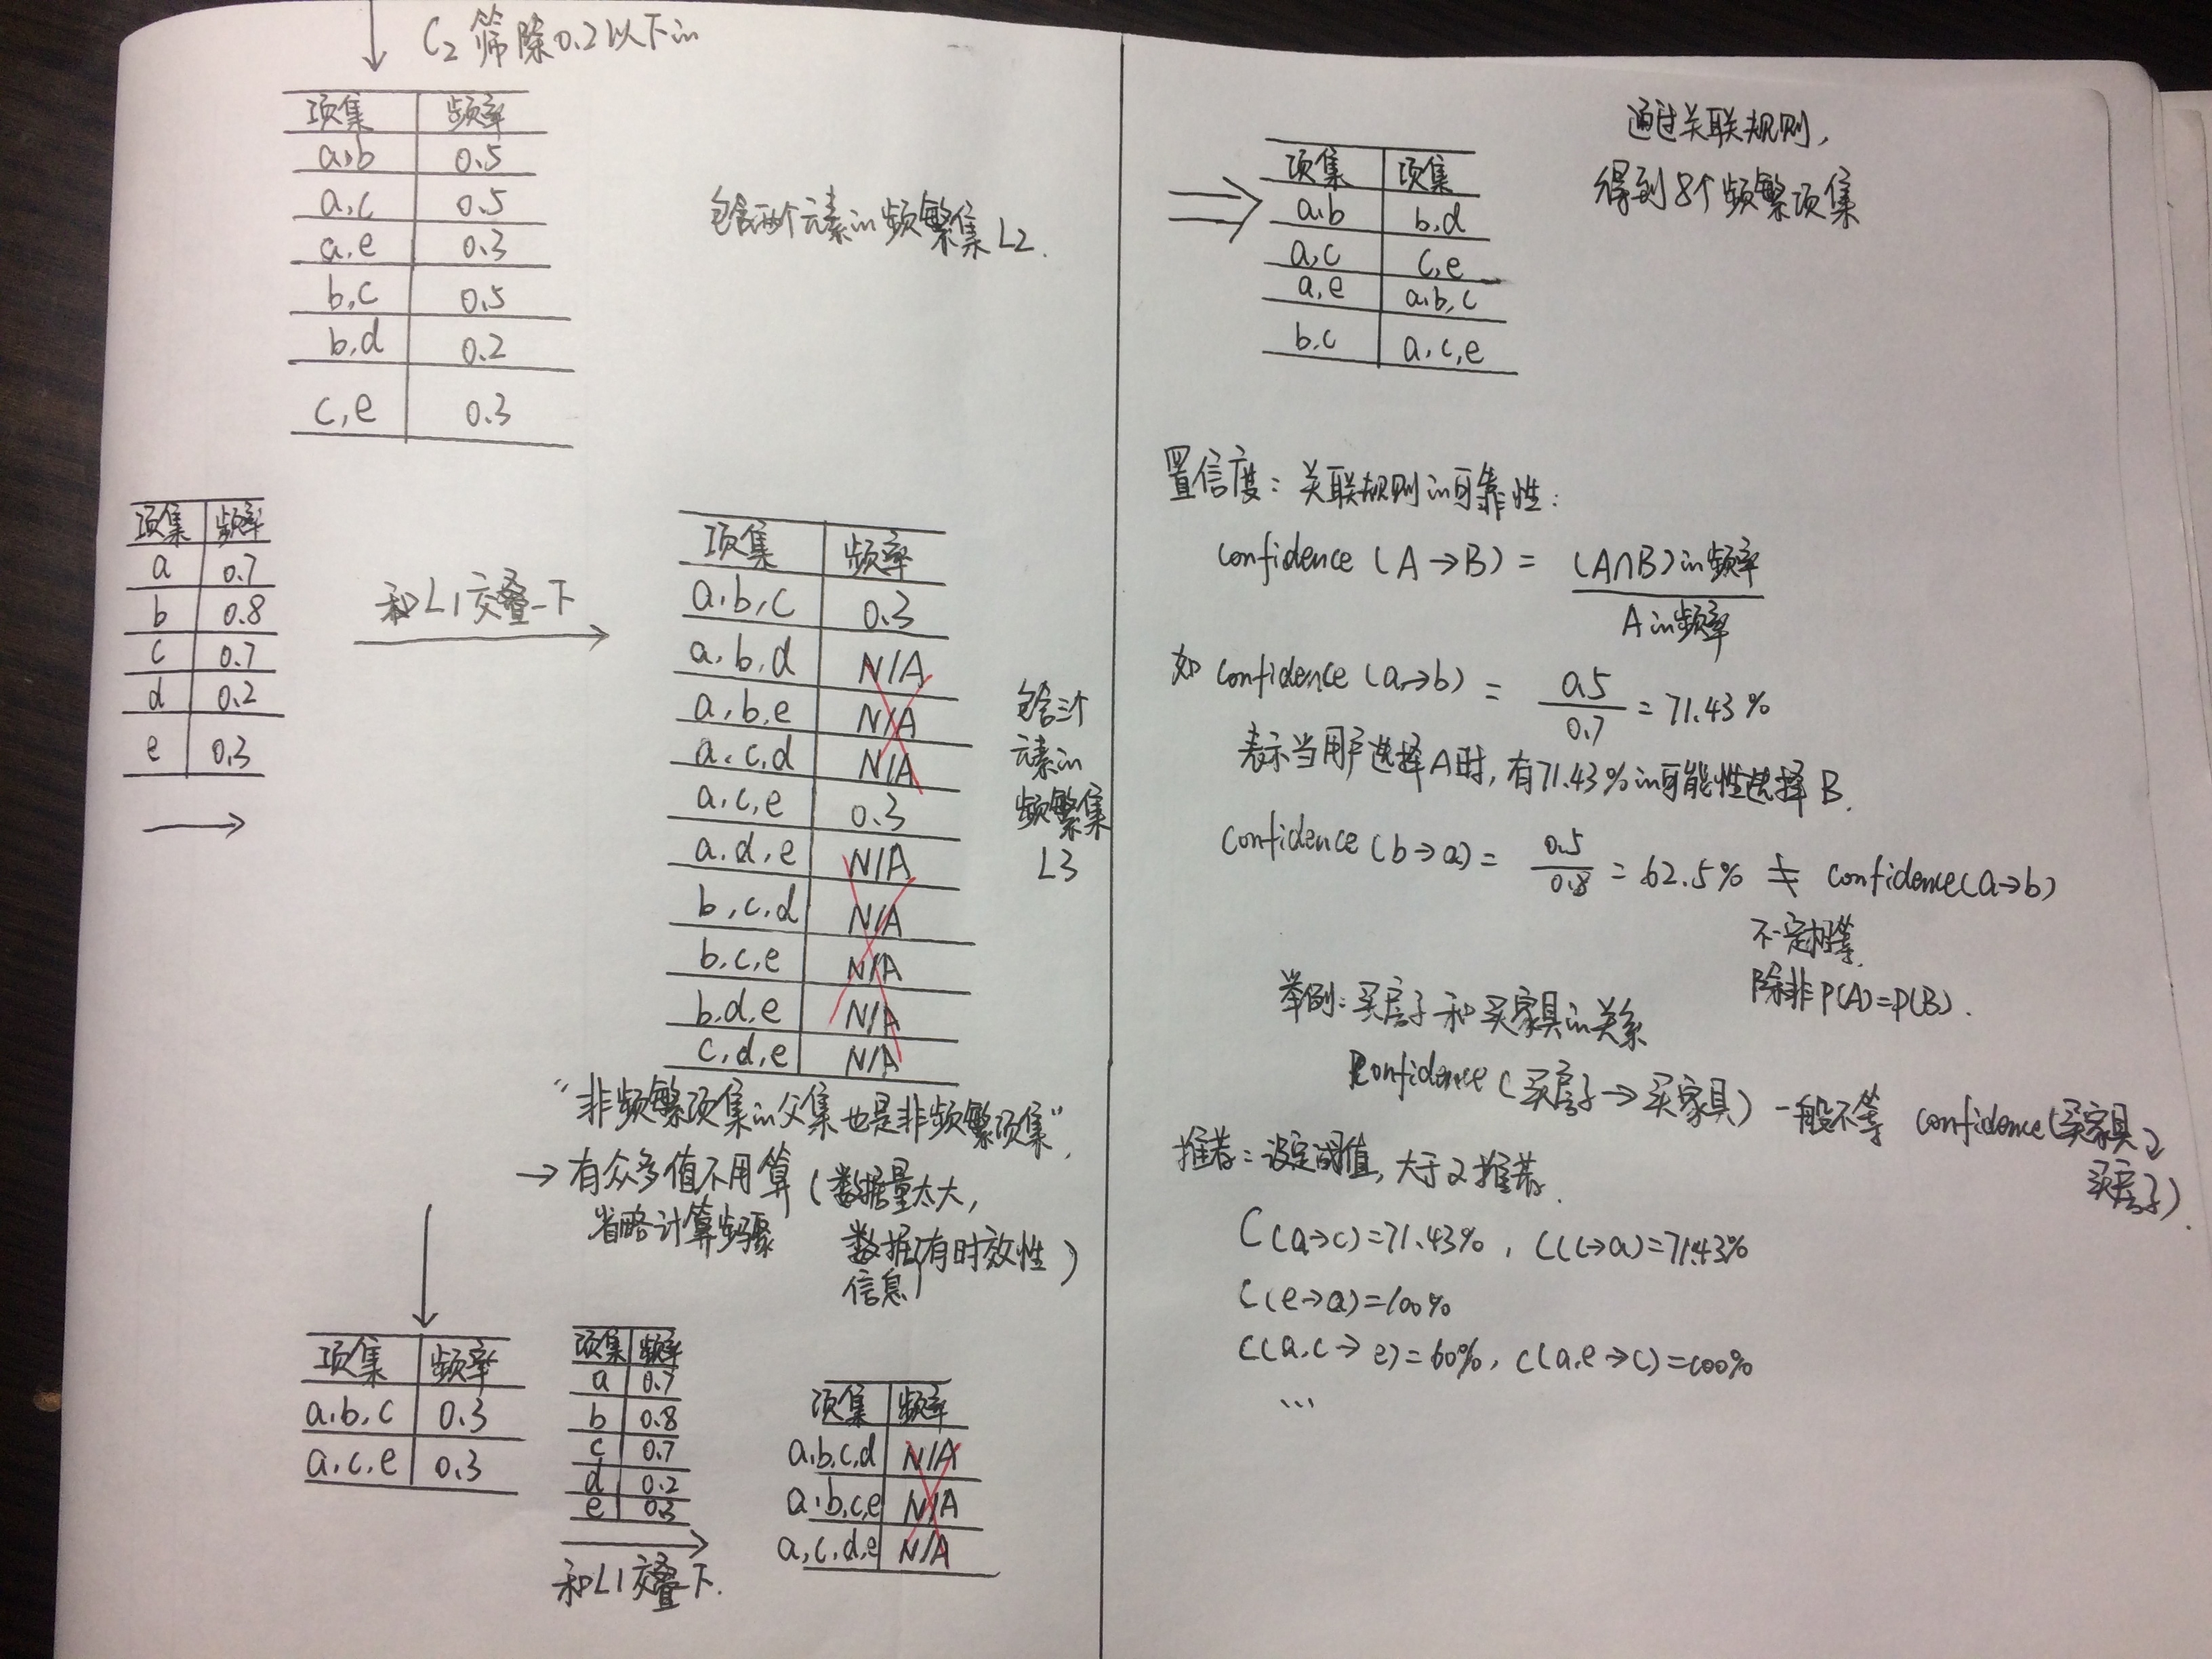 C2 筛除0.2以下in
项集 频率
a,b 0.5
a,c 0.5
a,e 0.3
b,c 0.5
b,d 0.2
c,e 0.3
包含两个元素in频繁集L2.
项集 频率
a 0.7
b 0.8
c 0.7
d 0.2
e 0.3
和L1交叠一下
项集 频率
a,b,c 0.3
a,b,d N/A
a,b,e N/A
a,c,d N/A
a,c,e 0.3
a,d,e N/A
b,c,d N/A
b,c,e N/A
b,d,e N/A
c,d,e N/A
包含三个
元素in
频繁集
L3
“非频繁项集in父集也是非频繁项集”.
→有众多值不用算(数据量太大,
省略计算步骤 数据有时效性)
信息
项集 频率
a,b,c 0.3
a,c,e 0.3
项集 频率
a 0.7
b 0.8
c 0.7
d 0.2
e 0.3
和L1交叠一下.
项集 频率
a,b,c,d N/A
a,b,c,e N/A
a,c,d,e N/A
通过关联规则,
得到8个频繁项集
项集 项集
a,b b,d
a,c c,e
a,e a,b,c
b,c a,c,e
置信度: 关联规则in可靠性:
confidence (A→B) = (A∩B)in频率
A in频率
如 confidence (a→b) = 0.5
0.7 = 71.43%
表示当用户选择A时,有71.43%in可能性选择B.
confidence (b→a) = 0.5
0.8 = 62.5% ≠ confidence(a→b)
不一定相等.
除非P(A)=P(B).
举例: 买房子和买家具in关系
confidence (买房子→买家具) 一般不等 confidence(买家具→
买房子).
推荐: 设定阈值, 大于α推荐.
C(a→c)=71.43%, C(c→a)=71.43%
C(e→a)=100%
C(a,c→e)=60%, C(a,e→c)=100%
...